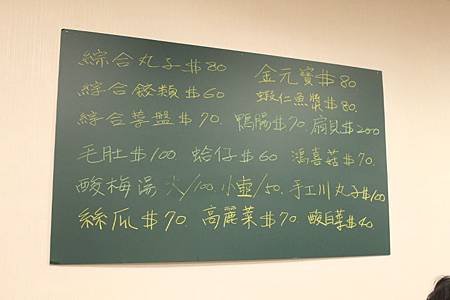 綜合丸子$80 金元寶$80
綜合餃類$60 蝦仁魚漿$80
綜合菇盤$70. 鴨腸$70. 扇貝$200
毛肚$100. 蛤仔$60 鴻喜菇$70.
酸梅湯 大/100. 小壺/50. 手工川丸子$100
絲瓜$70. 高麗菜$70 酸白菜$40